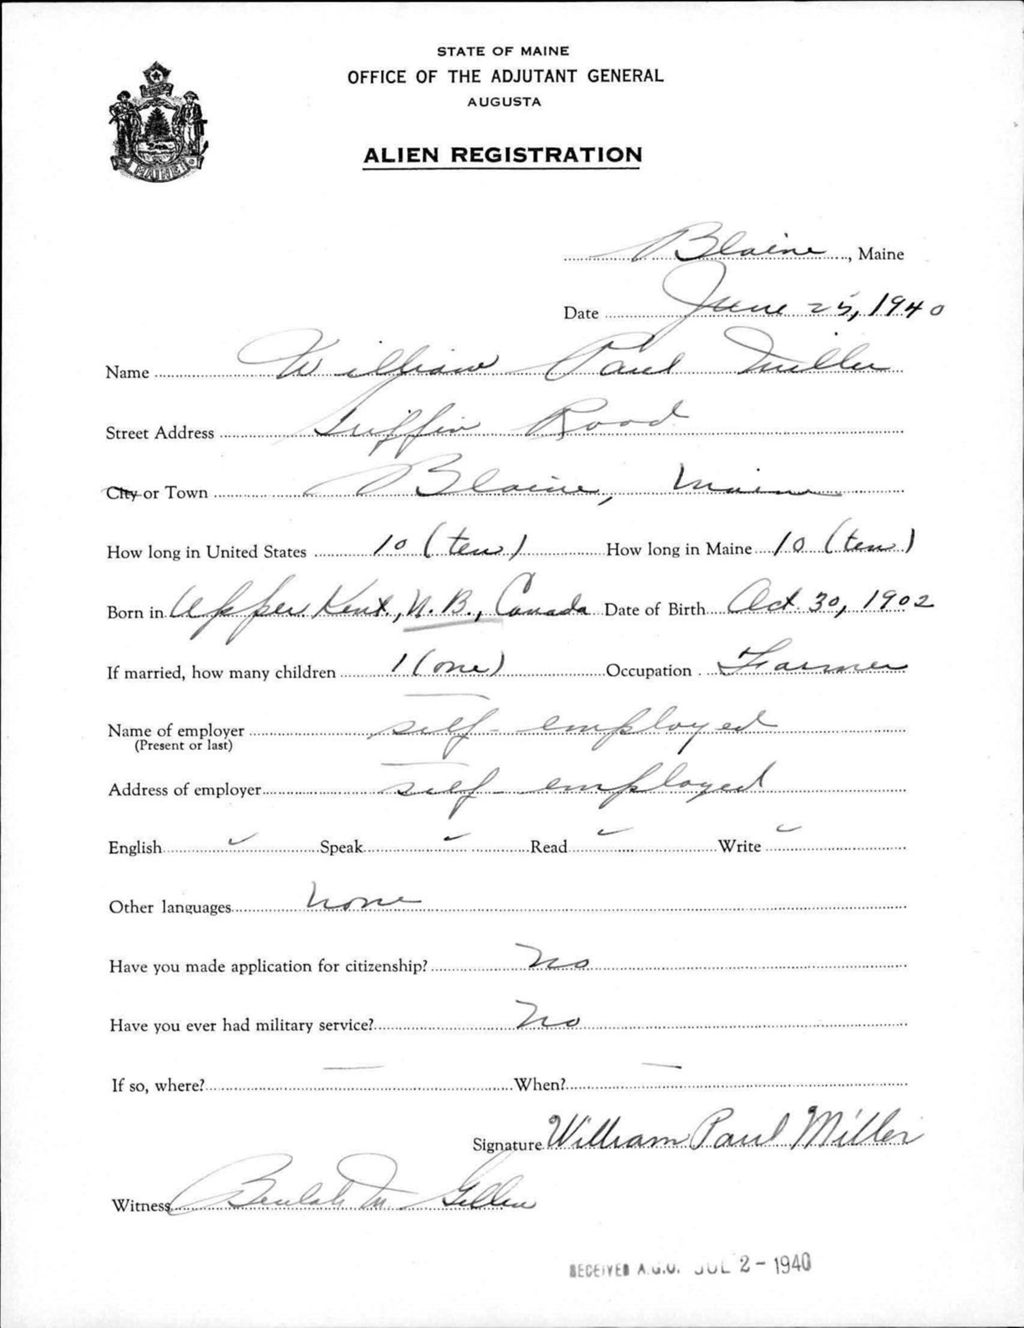 STATE OF MAINE
OFFICE OF THE ADJUTANT GENERAL
AUGUSTA
ALIEN REGISTRATION
MAINE
Blaine, Maine
Date June 25, 1940
Name William Paul Miller
Street Address Griffin Road
City or Town Blaine, Maine
How long in United States 10 (ten) How long in Maine 10 (ten)
Born in Upper Kent, N.B., Canada Date of Birth Oct 30, 1902
If married, how many children 1 (one) Occupation Farmer
Name of employer self-employed
(Present or last)
Address of employer self-employed
English ✓ Speak ✓ Read ✓ Write ✓
Other languages none
Have you made application for citizenship? No
Have you ever had military service? No
If so, where? — When? —
Signature William Paul Miller
Witness Beulah M.
RECEIVED A.G.O. JUL 2 - 1940